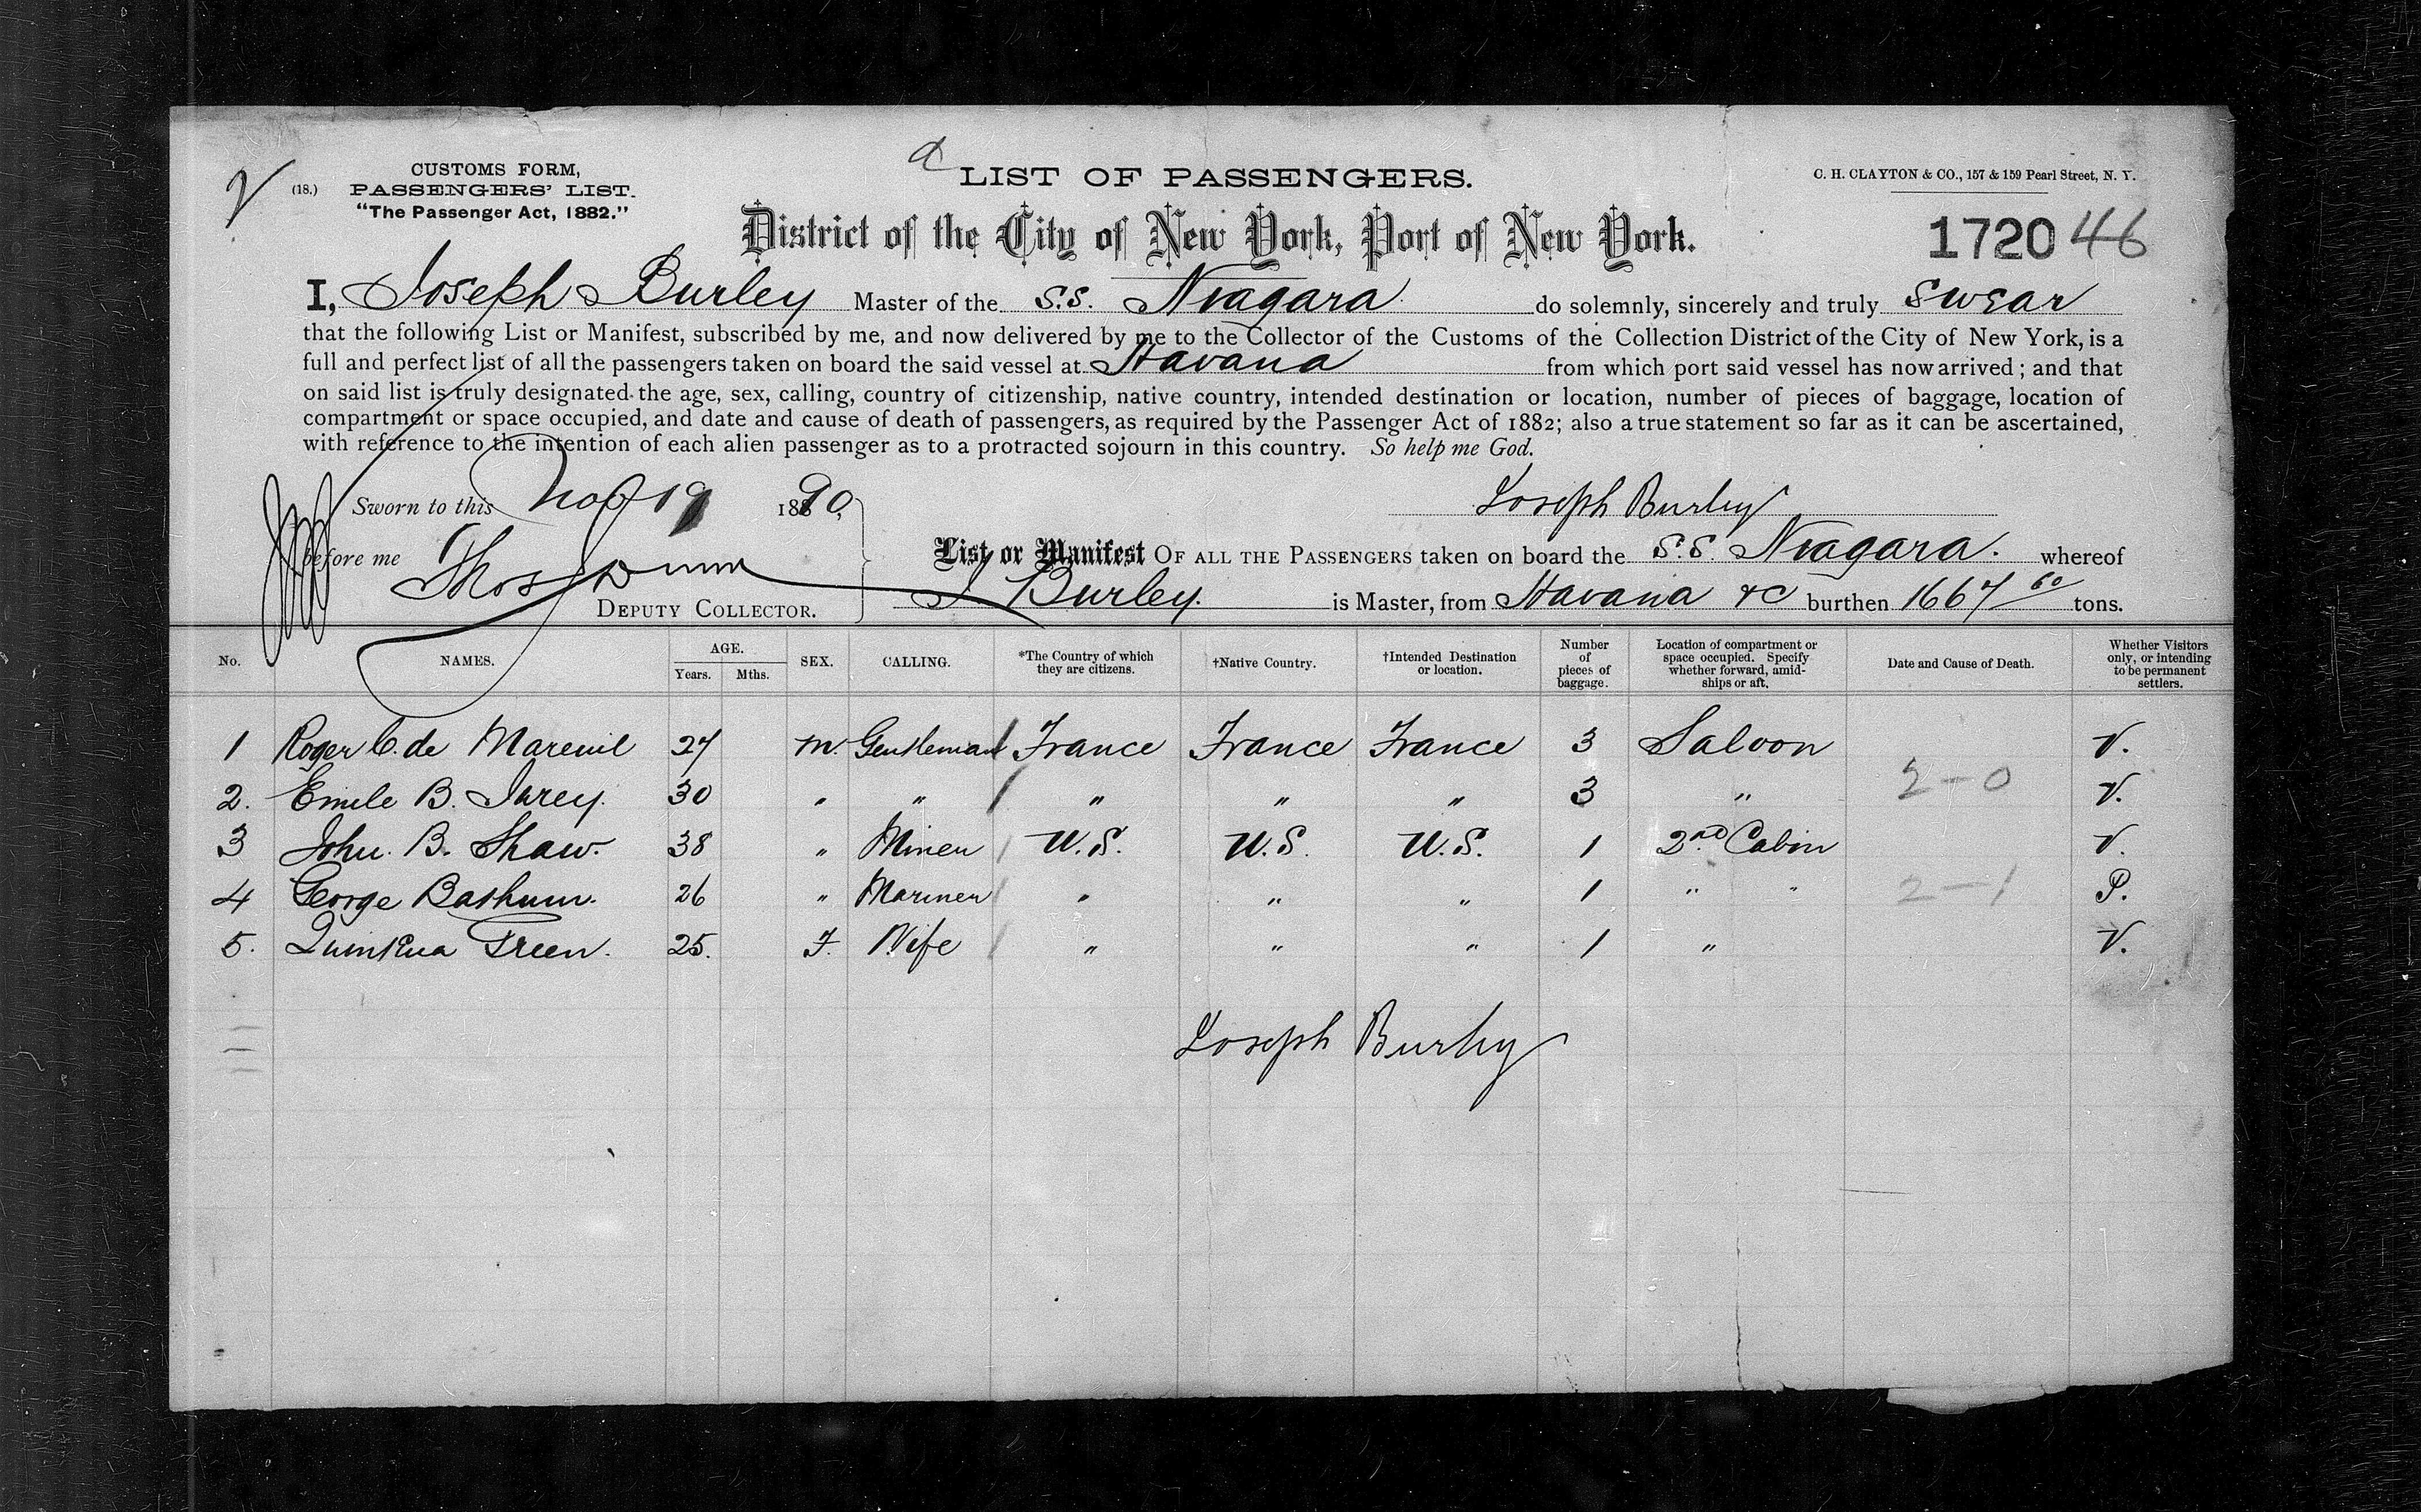 CUSTOMS FORM,
(18.) PASSENGERS' LIST.
"The Passenger Act, 1882."
LIST OF PASSENGERS.
C. H. CLAYTON & CO., 157 & 159 Pearl Street, N. Y.
District of the City of New York, Port of New York.
1720 46
I, Joseph Burley Master of the S.S. Niagara do solemnly, sincerely and truly swear
that the following List or Manifest, subscribed by me, and now delivered by me to the Collector of the Customs of the Collection District of the City of New York, is a
full and perfect list of all the passengers taken on board the said vessel at Havana from which port said vessel has now arrived; and that
on said list is truly designated the age, sex, calling, country of citizenship, native country, intended destination or location, number of pieces of baggage, location of
compartment or space occupied, and date and cause of death of passengers, as required by the Passenger Act of 1882; also a true statement so far as it can be ascertained,
with reference to the intention of each alien passenger as to a protracted sojourn in this country. So help me God.
Sworn to this Nov 19 1890, Joseph Burley
before me Thos Dunn
DEPUTY COLLECTOR.
List or Manifest OF ALL THE PASSENGERS taken on board the S.S. Niagara. whereof
J Burley. is Master, from Havana &c burthen 1667 60 tons.
No. NAMES. AGE. Years. Mths. SEX. CALLING. *The Country of which they are citizens. †Native Country. †Intended Destination or location. Number of pieces of baggage. Location of compartment or space occupied. Specify whether forward, amidships or aft. Date and Cause of Death. Whether Visitors only, or intending to be permanent settlers.
1 Roger C. de Mareuil 27 M. Gentleman France France France 3 Saloon V.
2. Emile B. 30 " " " " " 3 " 2-0 V.
3 John. B. Shaw. 38 " Miner U.S. U.S. U.S. 1 2nd Cabin V.
4 George 26 " Mariner " " " 1 " " 2-1 P.
5. Green. 25. F. Wife " " " 1 " V.
Joseph Burley